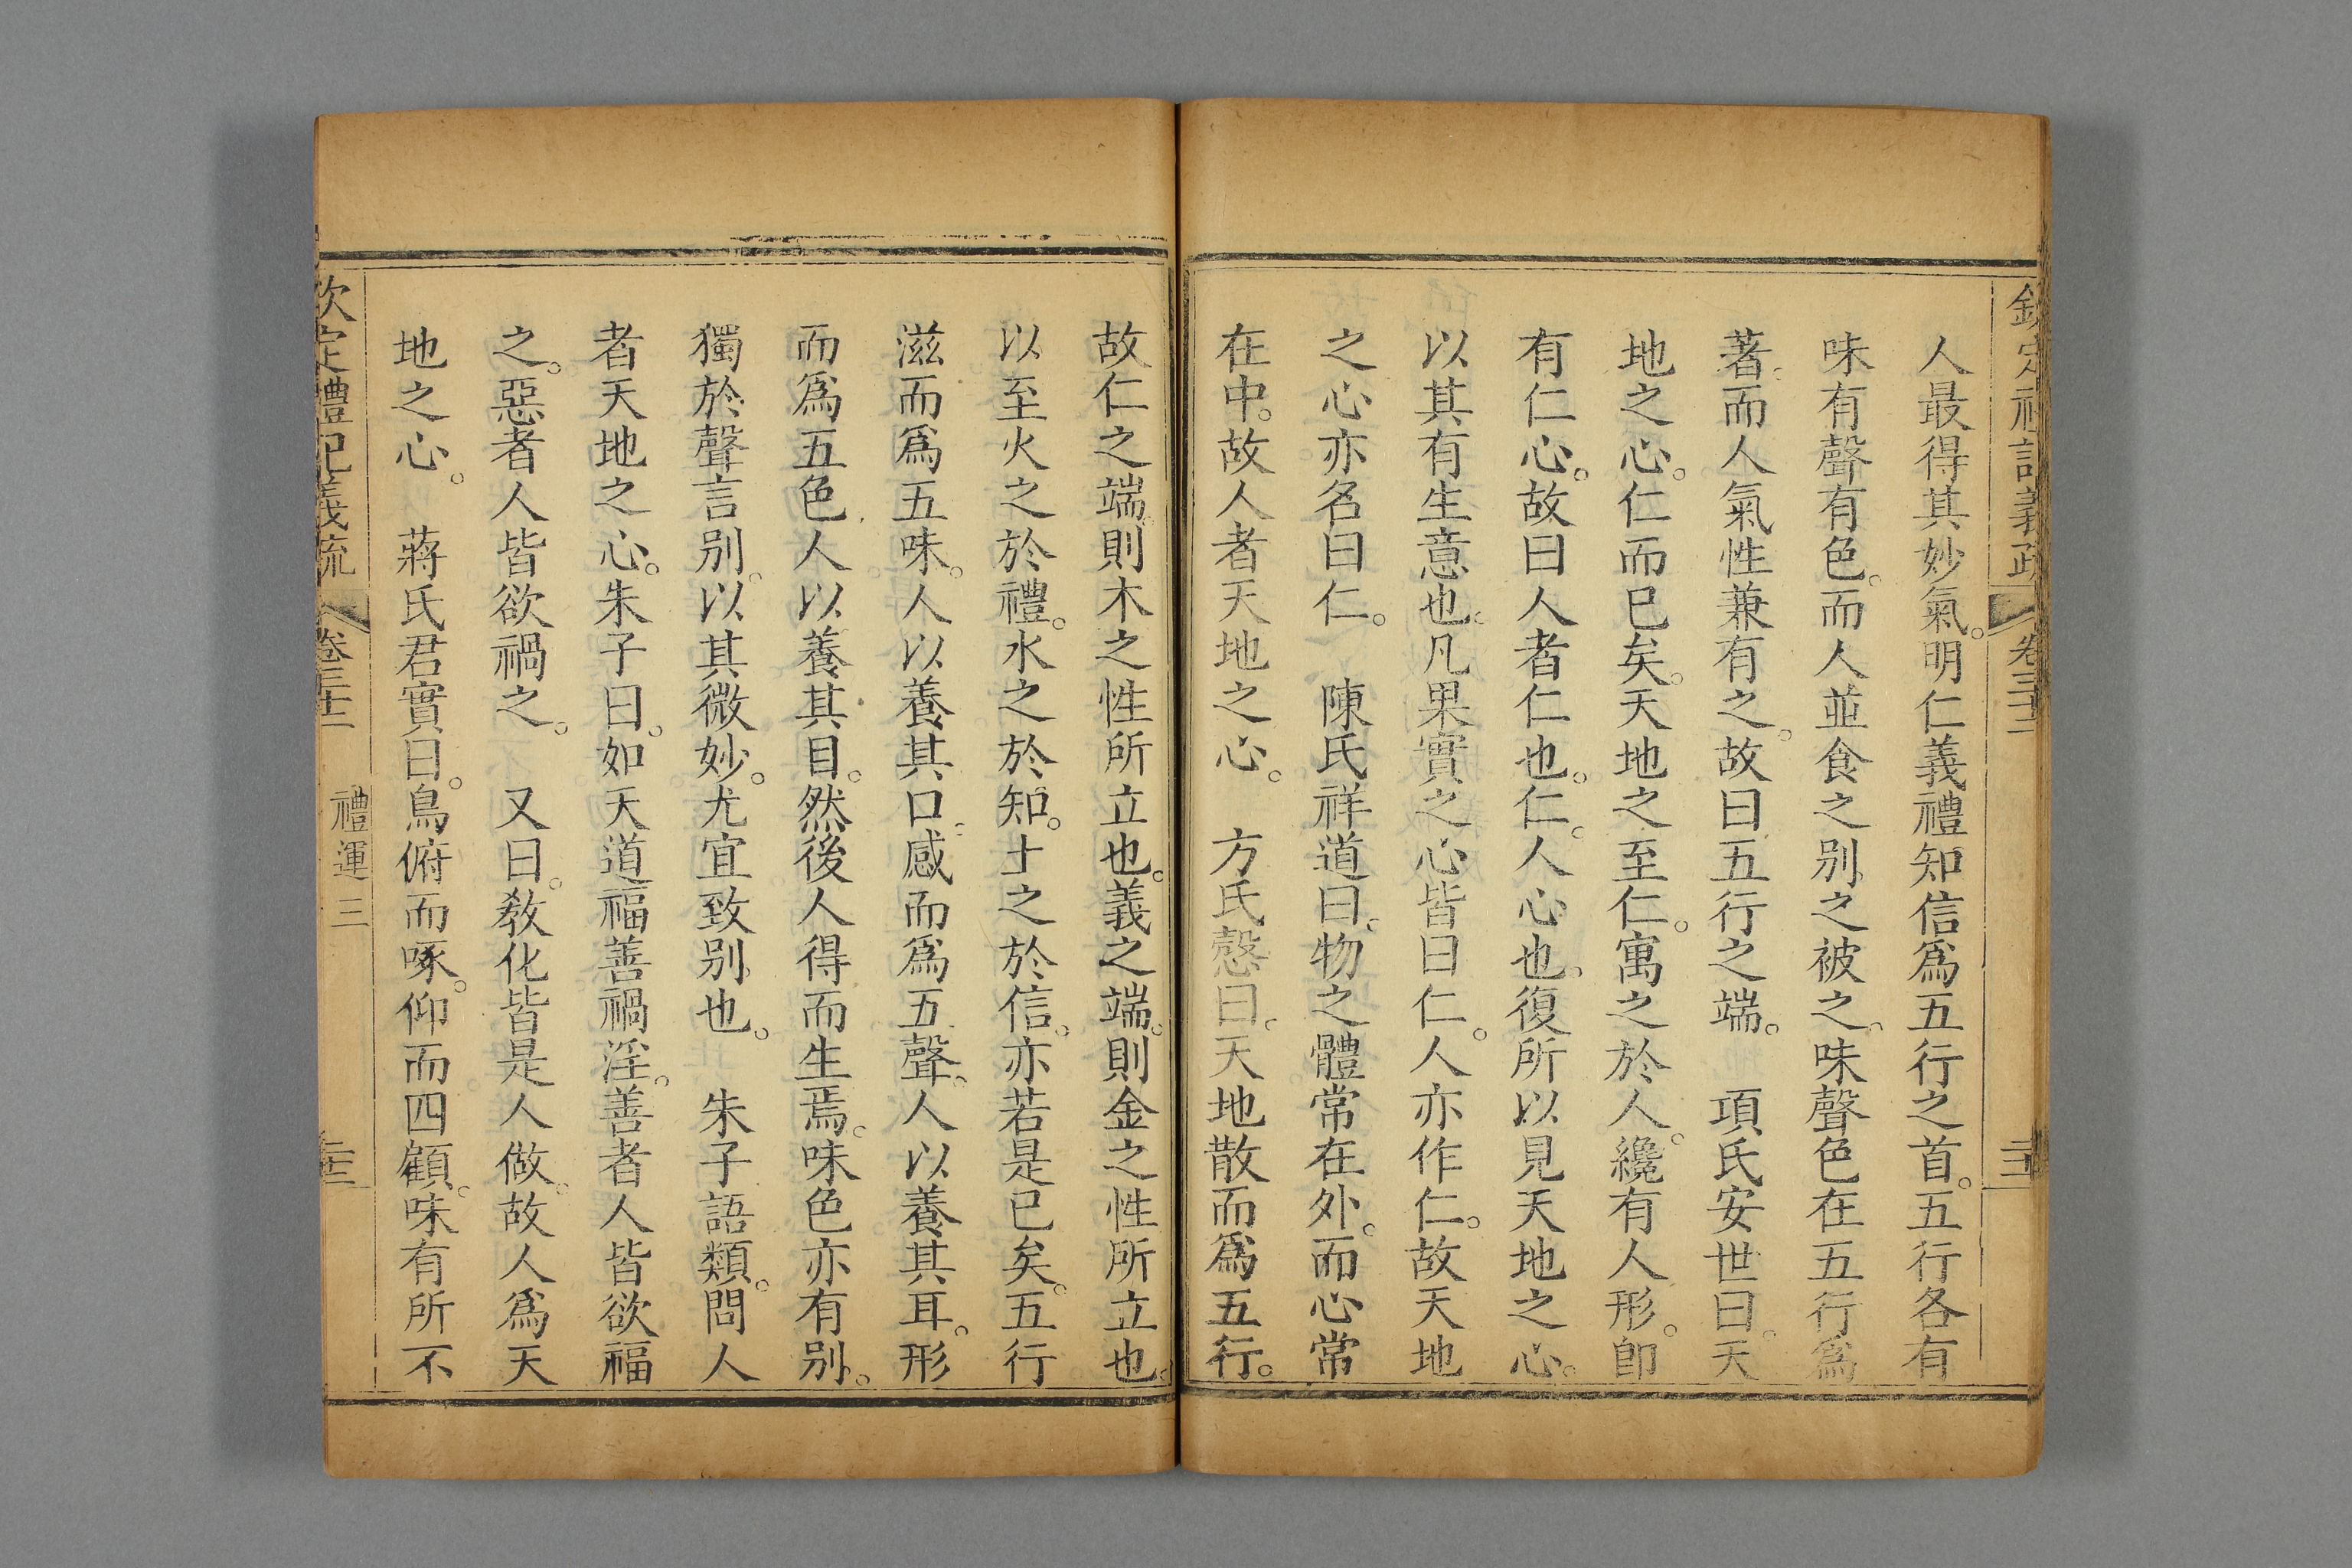 人最得其妙氣。明仁義禮知信爲五行之首。五行各有
味有聲有色。而人並食之别之被之。味聲色在五行爲
著。而人氣性兼有之。故曰五行之端。　項氏安世曰。天
地之心。仁而已矣。天地之至仁。寓之於人。纔有人形。卽
有仁心。故曰人者仁也。仁。人心也。復所以見天地之心。
以其有生意也。凡果實之心皆曰仁。人亦作仁。故天地
之心亦名曰仁。　陳氏祥道曰。物之體常在外。而心常
在中。故人者天地之心。　方氏慤曰。天地散而爲五行。
故仁之端。則木之性所立也。義之端。則金之性所立也。
以至火之於禮。水之於知。土之於信。亦若是已矣。五行
滋而爲五味。人以養其口。感而爲五聲。人以養其耳。形
而爲五色。人以養其目。然後人得而生焉。味色亦有别。
獨於聲言别。以其微妙。尤宜致别也。　朱子語類。問人
者天地之心。朱子曰。如天道福善禍淫。善者人皆欲福
之。惡者人皆欲禍之。　又曰。敎化皆是人做。故人爲天
地之心。　蔣氏君實曰。鳥俯而啄。仰而四顧。味有所不
欽定禮記義疏　卷三十二　禮運三